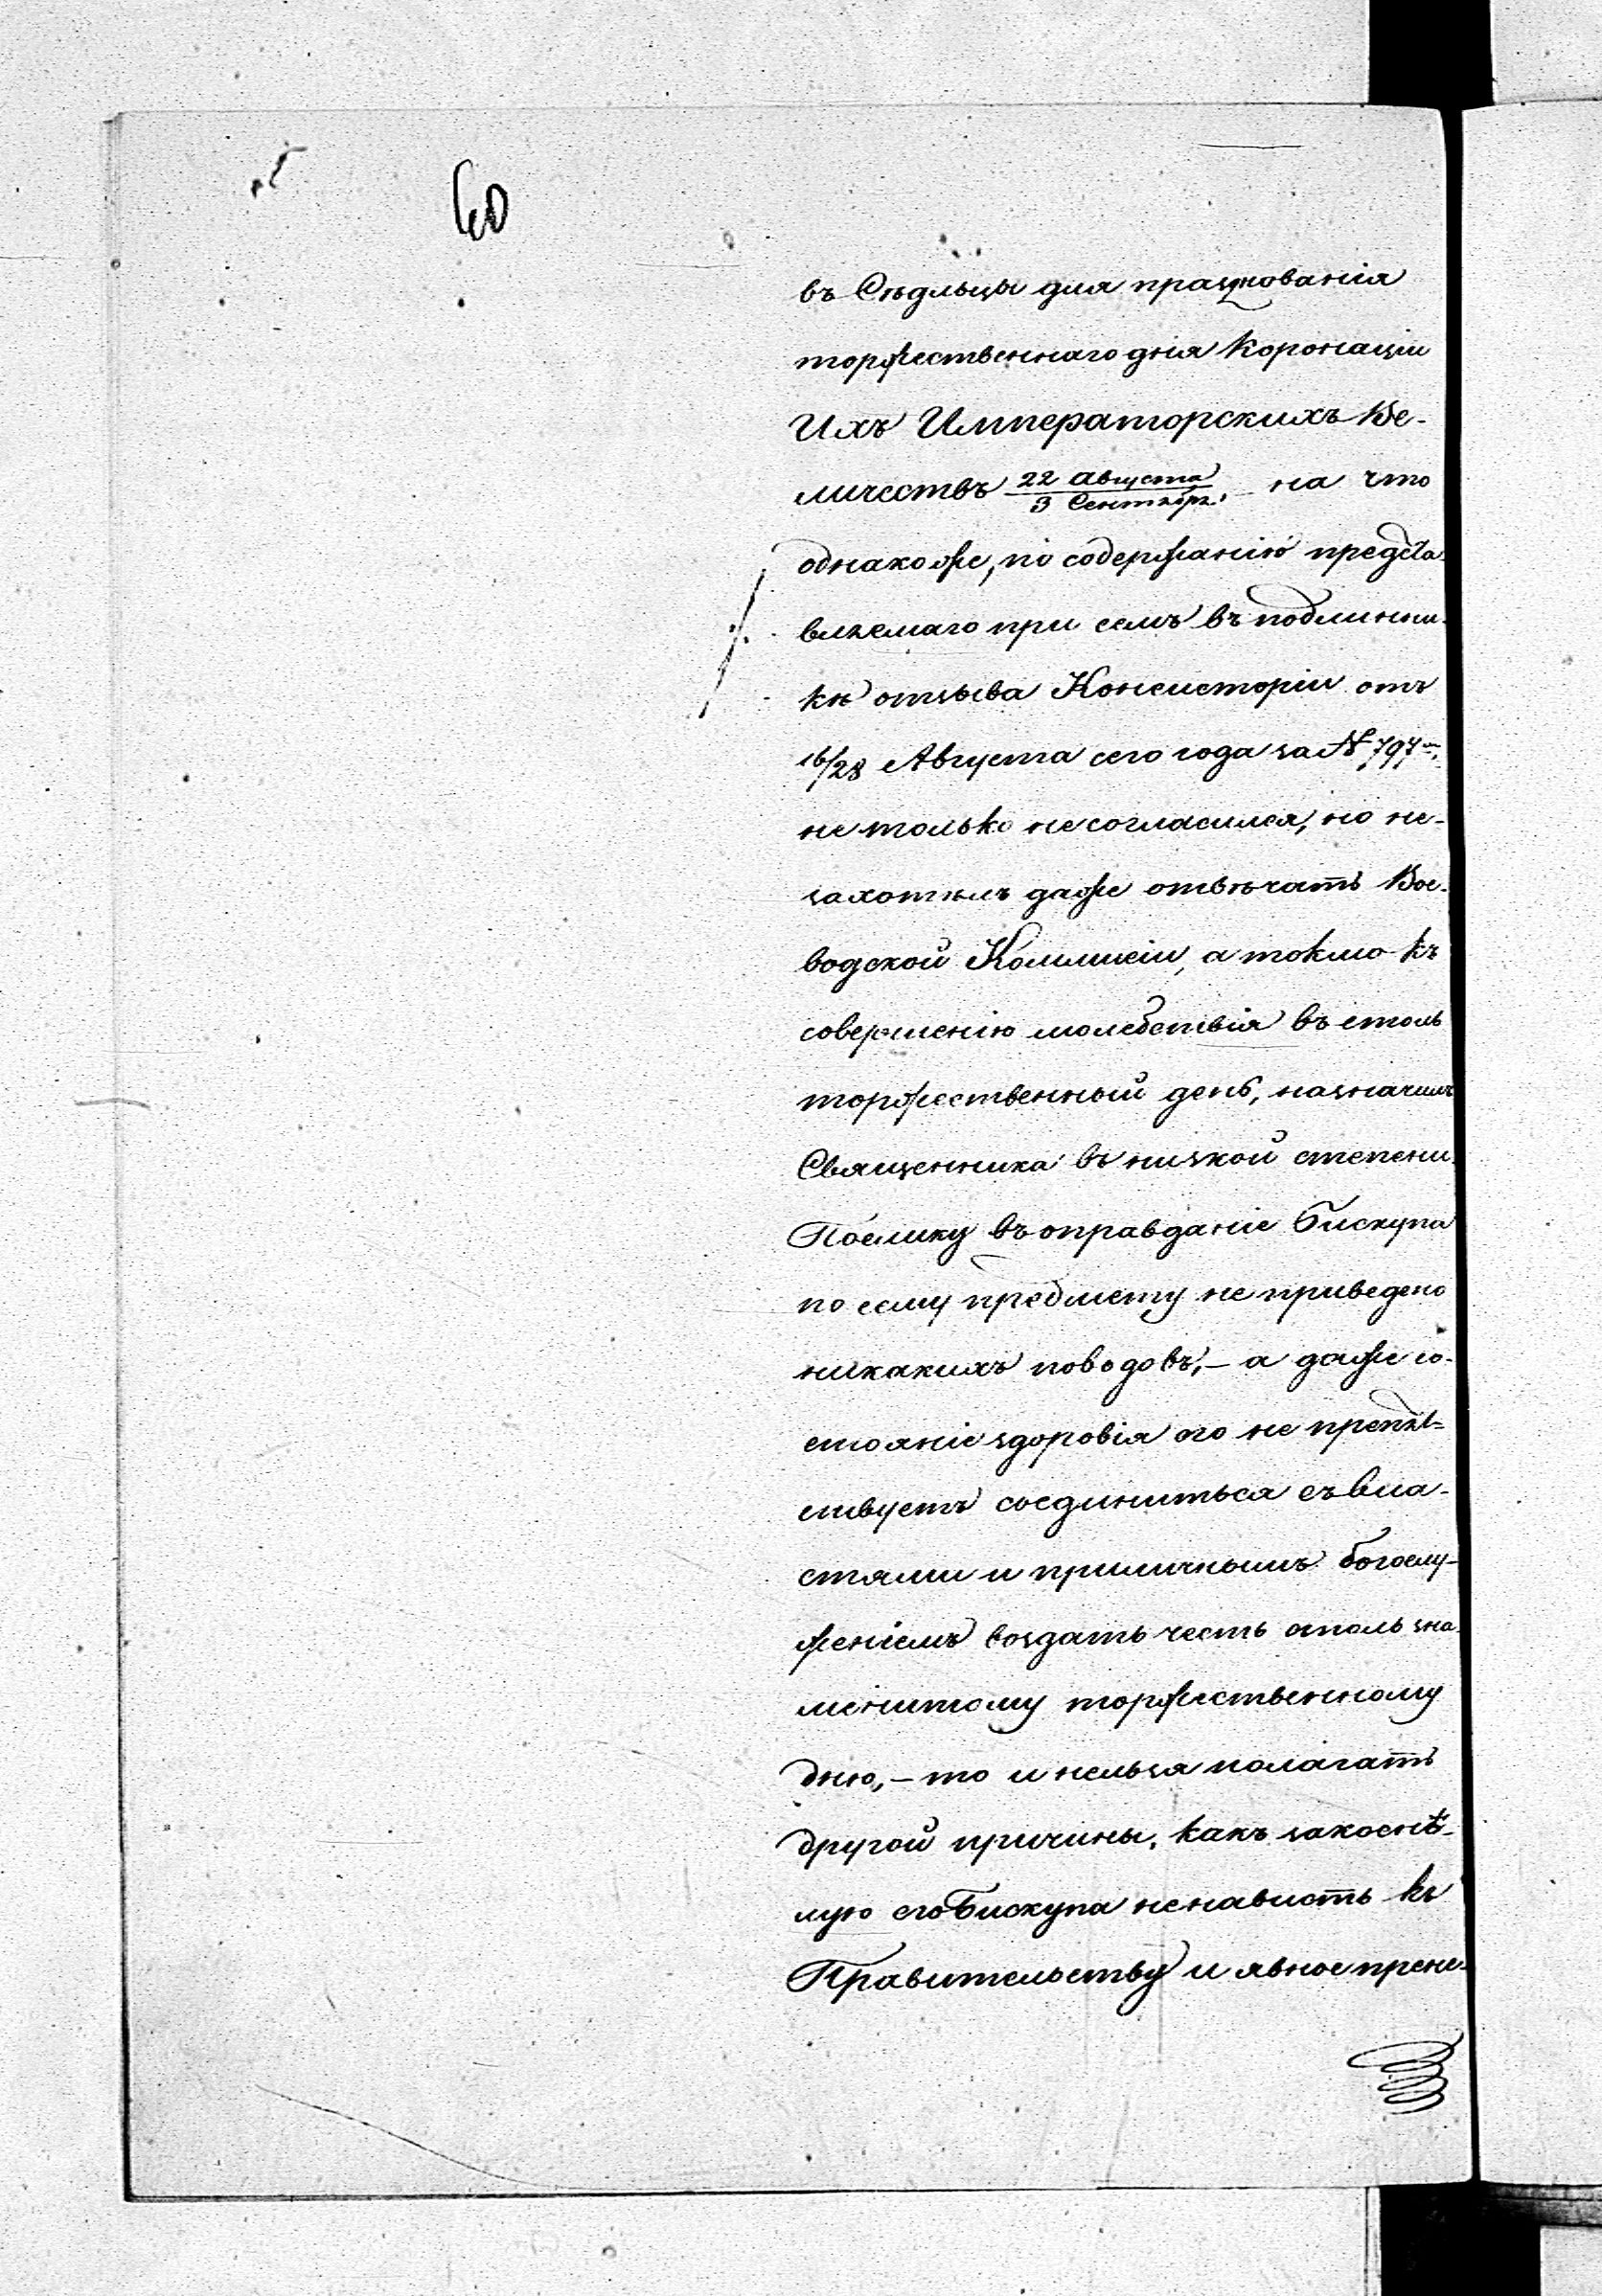 60
въ Сѣдльцы для празднованія
торжественнаго дня Коронаціи
Ихъ Императорскихъ Ве-
личествъ 22 Августа / 3 Сентября. на что
однакоже, по содержанію предста-
вляемаго при семъ въ подлинни-
кѣ отзыва Консисторіи отъ
16/28 Августа сего года за № 797.
не только не согласился, но не-
захотѣлъ даже отвѣчать Вое-
водской Коммисіи, а токмо къ
совершенію молебствія въ столь
торжественный день, назначилъ
Священника въ низкой степени.
Поелику въ оправданіе Бискупа
по сему предмету не приведено
никакихъ поводовъ, – а даже со-
стояніе здоровія его не препят-
ствуетъ соединиться съ вла-
стями и приличнымъ богослу-
женіемъ воздать честь столь зна-
менитому торжественному
дню, – то и нельзя полагать
другой причины, какъ закоснѣ-
лую его Бискупа ненависть къ
Правительству и явное прене-